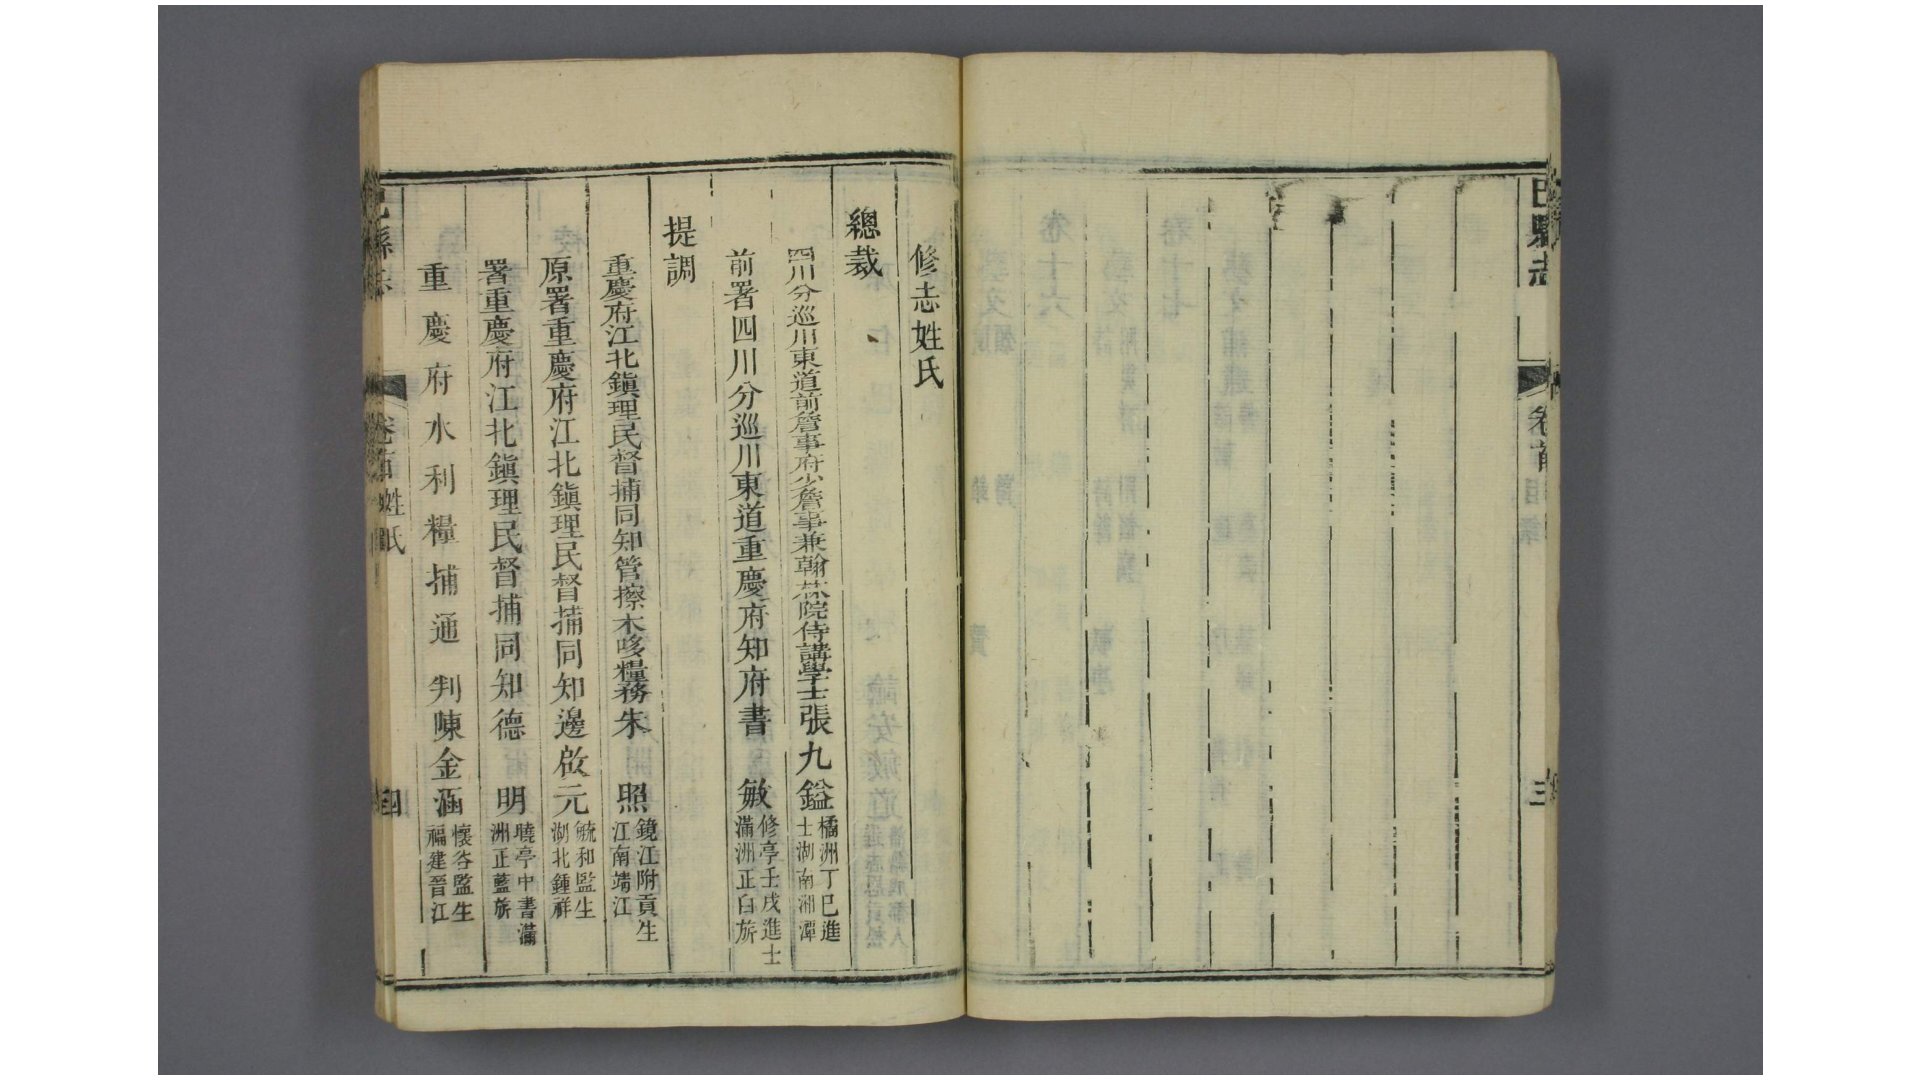 巴縣志
卷首
三
修志姓氏
總裁
四川分巡川東道前詹事府少詹事兼翰林院侍講學士張九鎰橘洲丁巳進
士湖南湘潭
前署四川分巡川東道重慶府知府書敏修亭壬戌進士
滿洲正白旂
提調
重慶府江北鎮理民督捕同知管擦木哆糧務朱照鏡江附貢生
江南靖江
原署重慶府江北鎮理民督捕同知邊啟元毓和監生
湖北鍾祥
署重慶府江北鎮理民督捕同知德明曉亭中書滿
洲正藍旂
重慶府水利糧捕通判陳金涵懷谷監生
福建晉江
巴縣志
卷首
姓氏
四